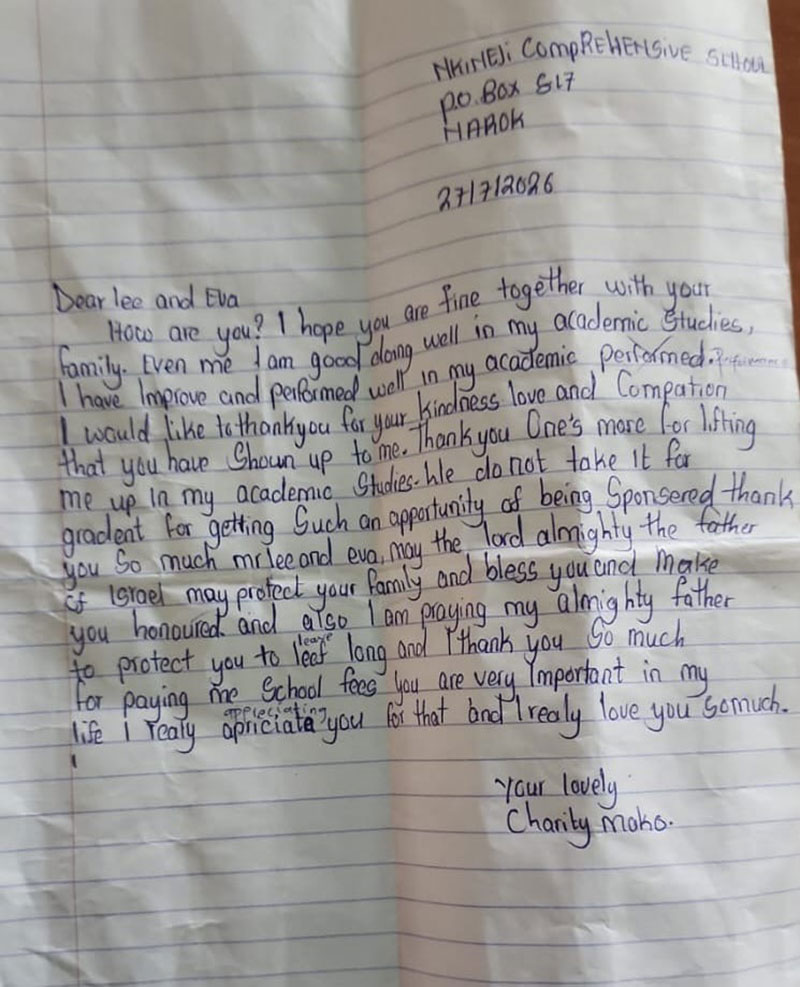 NKINEJi CompREHENSive SCHOOL
P.O. Box 517
NAROK
27/7/2026
Dear lee and Eva
How are you? I hope you are fine together with your
family. Even me I am good doing well in my academic Studies,
I have Improve and performed well in my academic performed.
I would like to thankyou for your kindness love and Compation
that you have Shown up to me. Thank you One's more for lifting
me up in my academic Studies. We do not take it for
gradent for getting Such an opportunity of being Sponsered thank
you So much mr lee and eva, may the lord almighty the father
of Israel may protect your family and bless you and Make
you honoured. and also I am praying my almighty father
to protect you to leef long and I thank you So much
for paying me School fees you are very Important in my
appreciating
life I realy apriciate you for that and I realy love you Somuch.
Your lovely
Charity Moko.